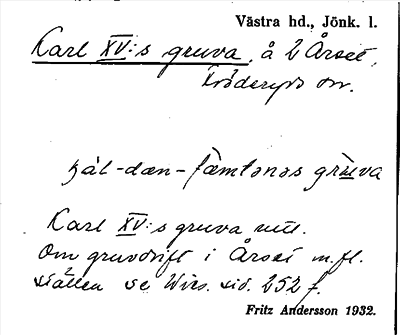 Västra hd., Jönk. l.
Karl XV:s gruva, å 2 Årset,
Fröderyds sn.
kál-dæn-fæmtənəs grùva
Karl XV:s gruva
Om gruvdrift i Årset m.fl.
ställen se Wirs. sid. 252 f.
Fritz Andersson 1932.